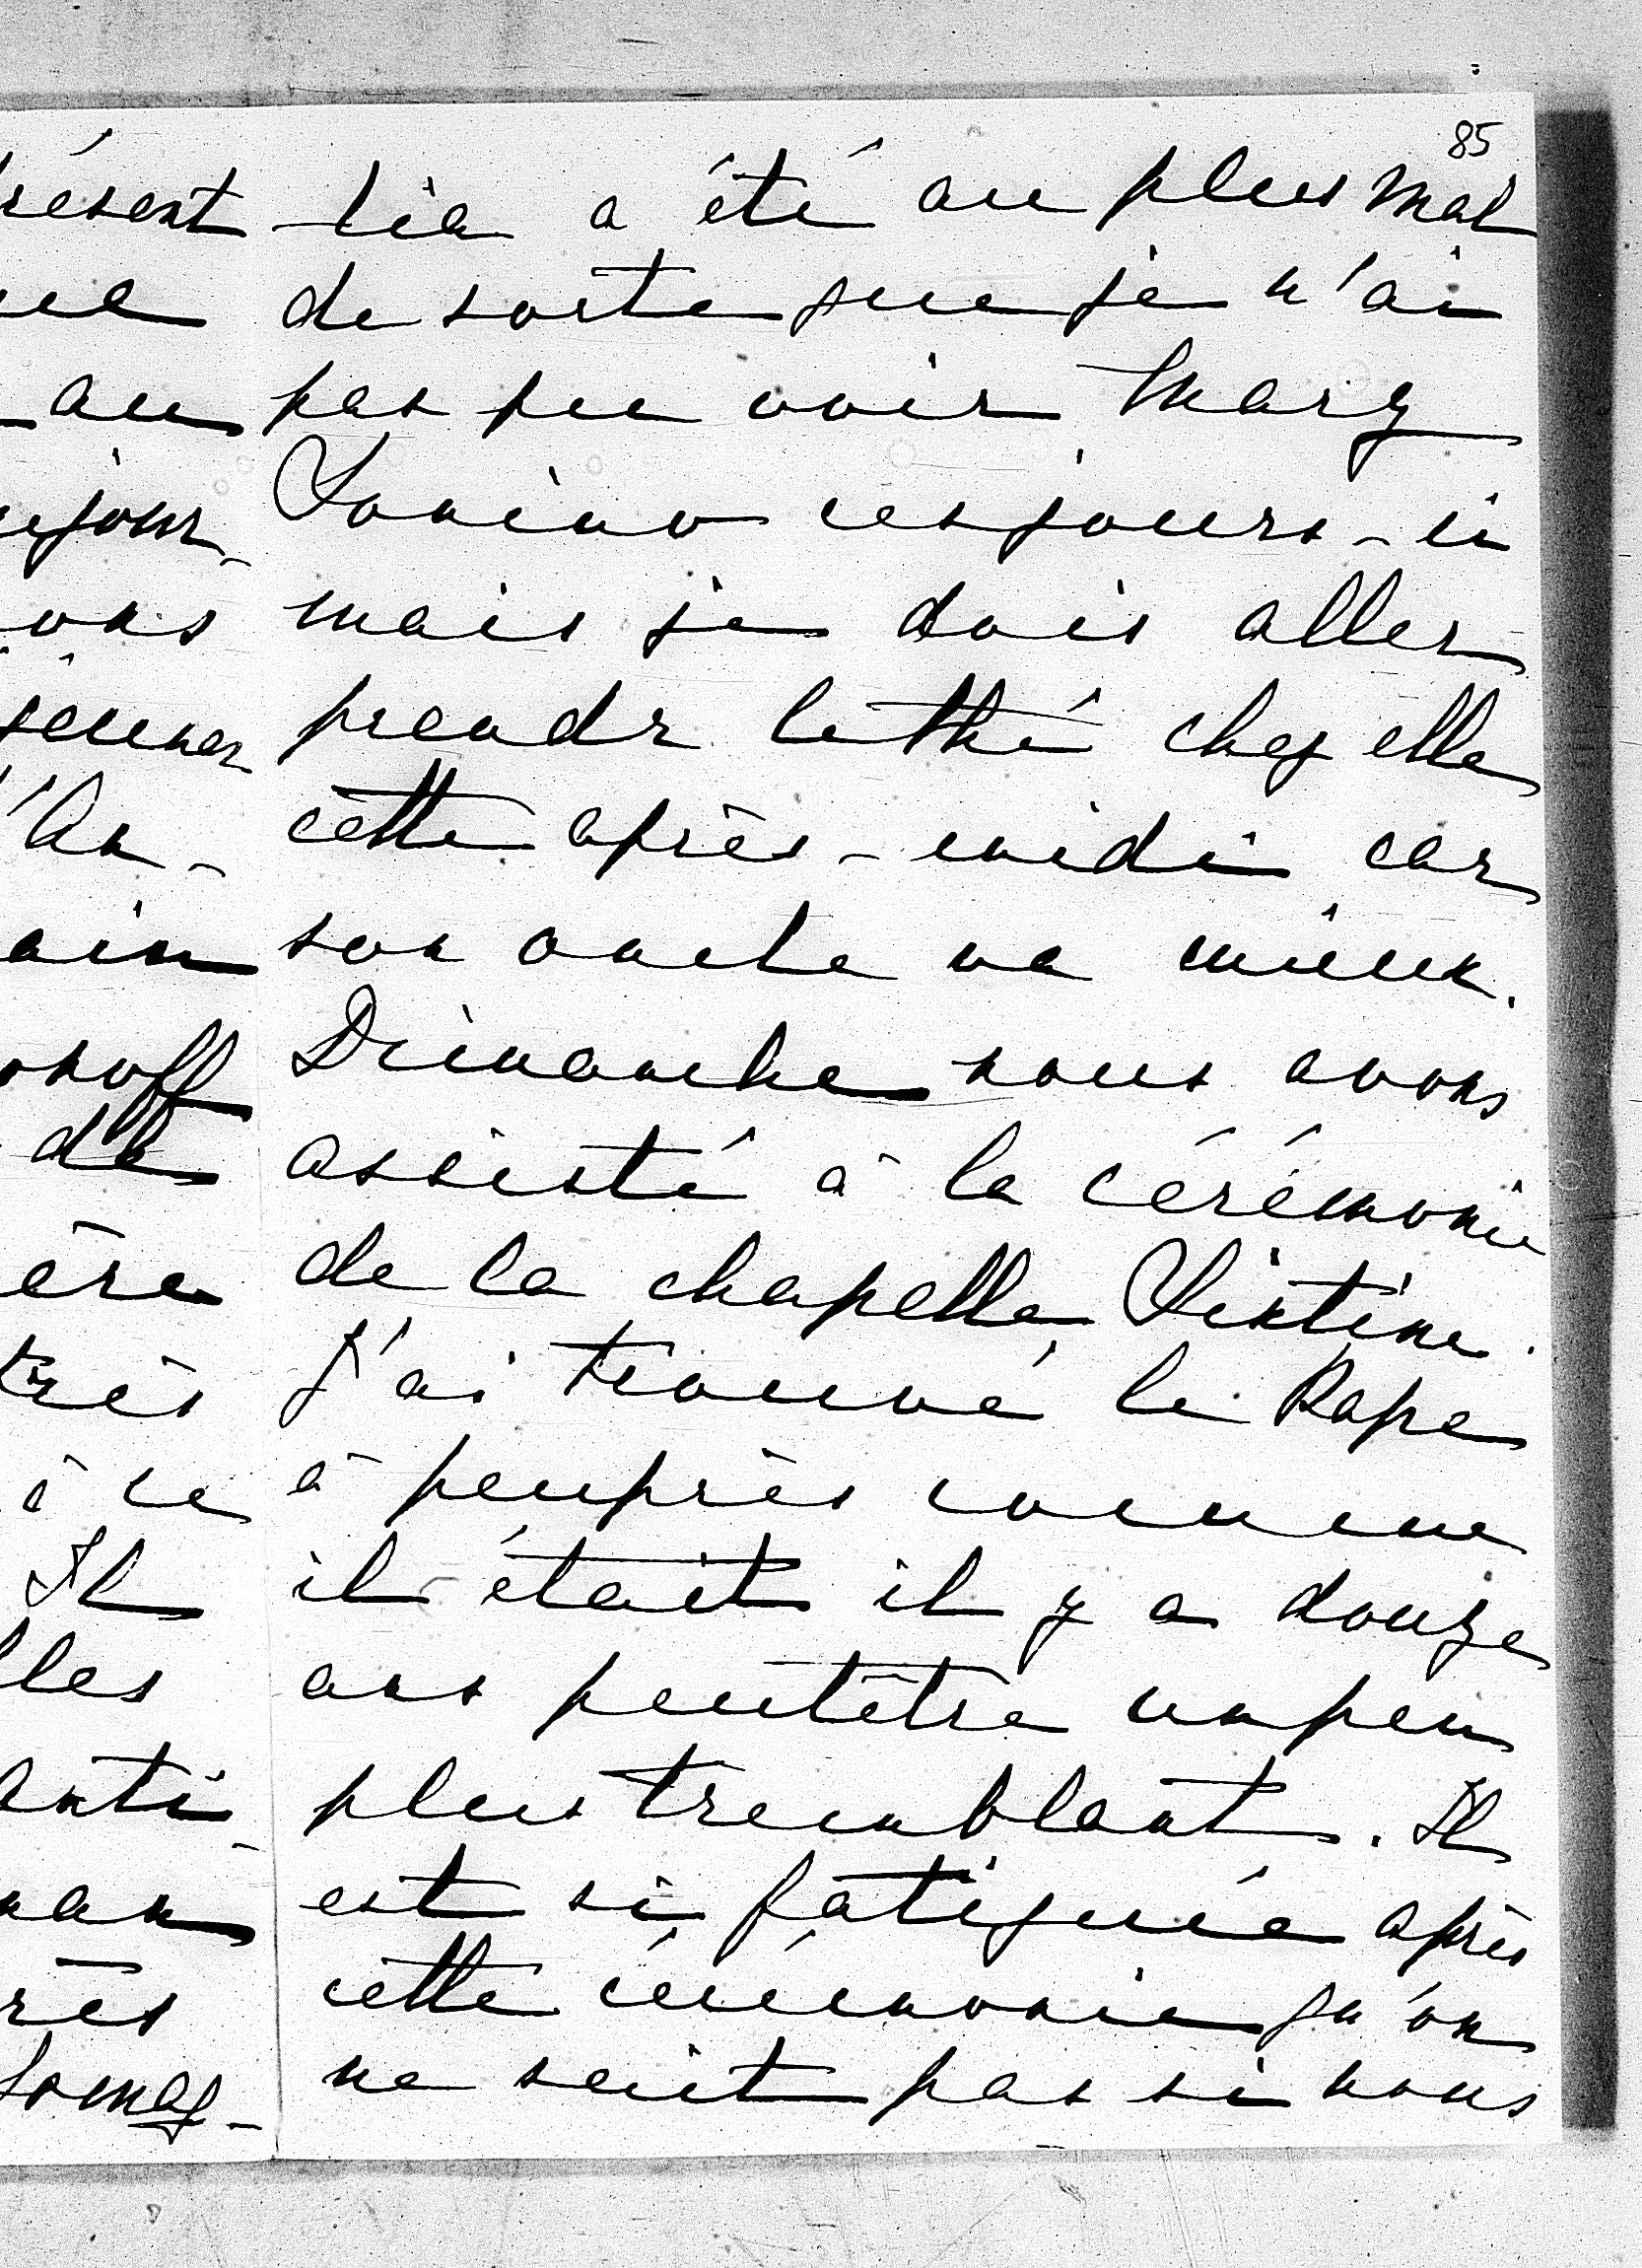 85
résent
ue
au
ujour-
ons
jeuner
d'An-
ain
onoff
de
ère
très
à ce
Il
lles
anti-
man
rès
Lomag-
lia a été au plus mal
de sorte que je n'ai
pas pu voir Mary
Sonino ces jours-ci
mais je dois aller
prendr le thé chez elle
cette après-midi car
son oncle va mieux.
Dimanche nous avons
assisté à la cérémonie
de la chapelle Sixtine.
J'ai trouvé le Pape
à peuprès comme
il était il y a douze
ans peutêtre un peu
plus tremblant. Il
est si fatiguée après
cette cérémonie qu'on
ne sait pas si nous